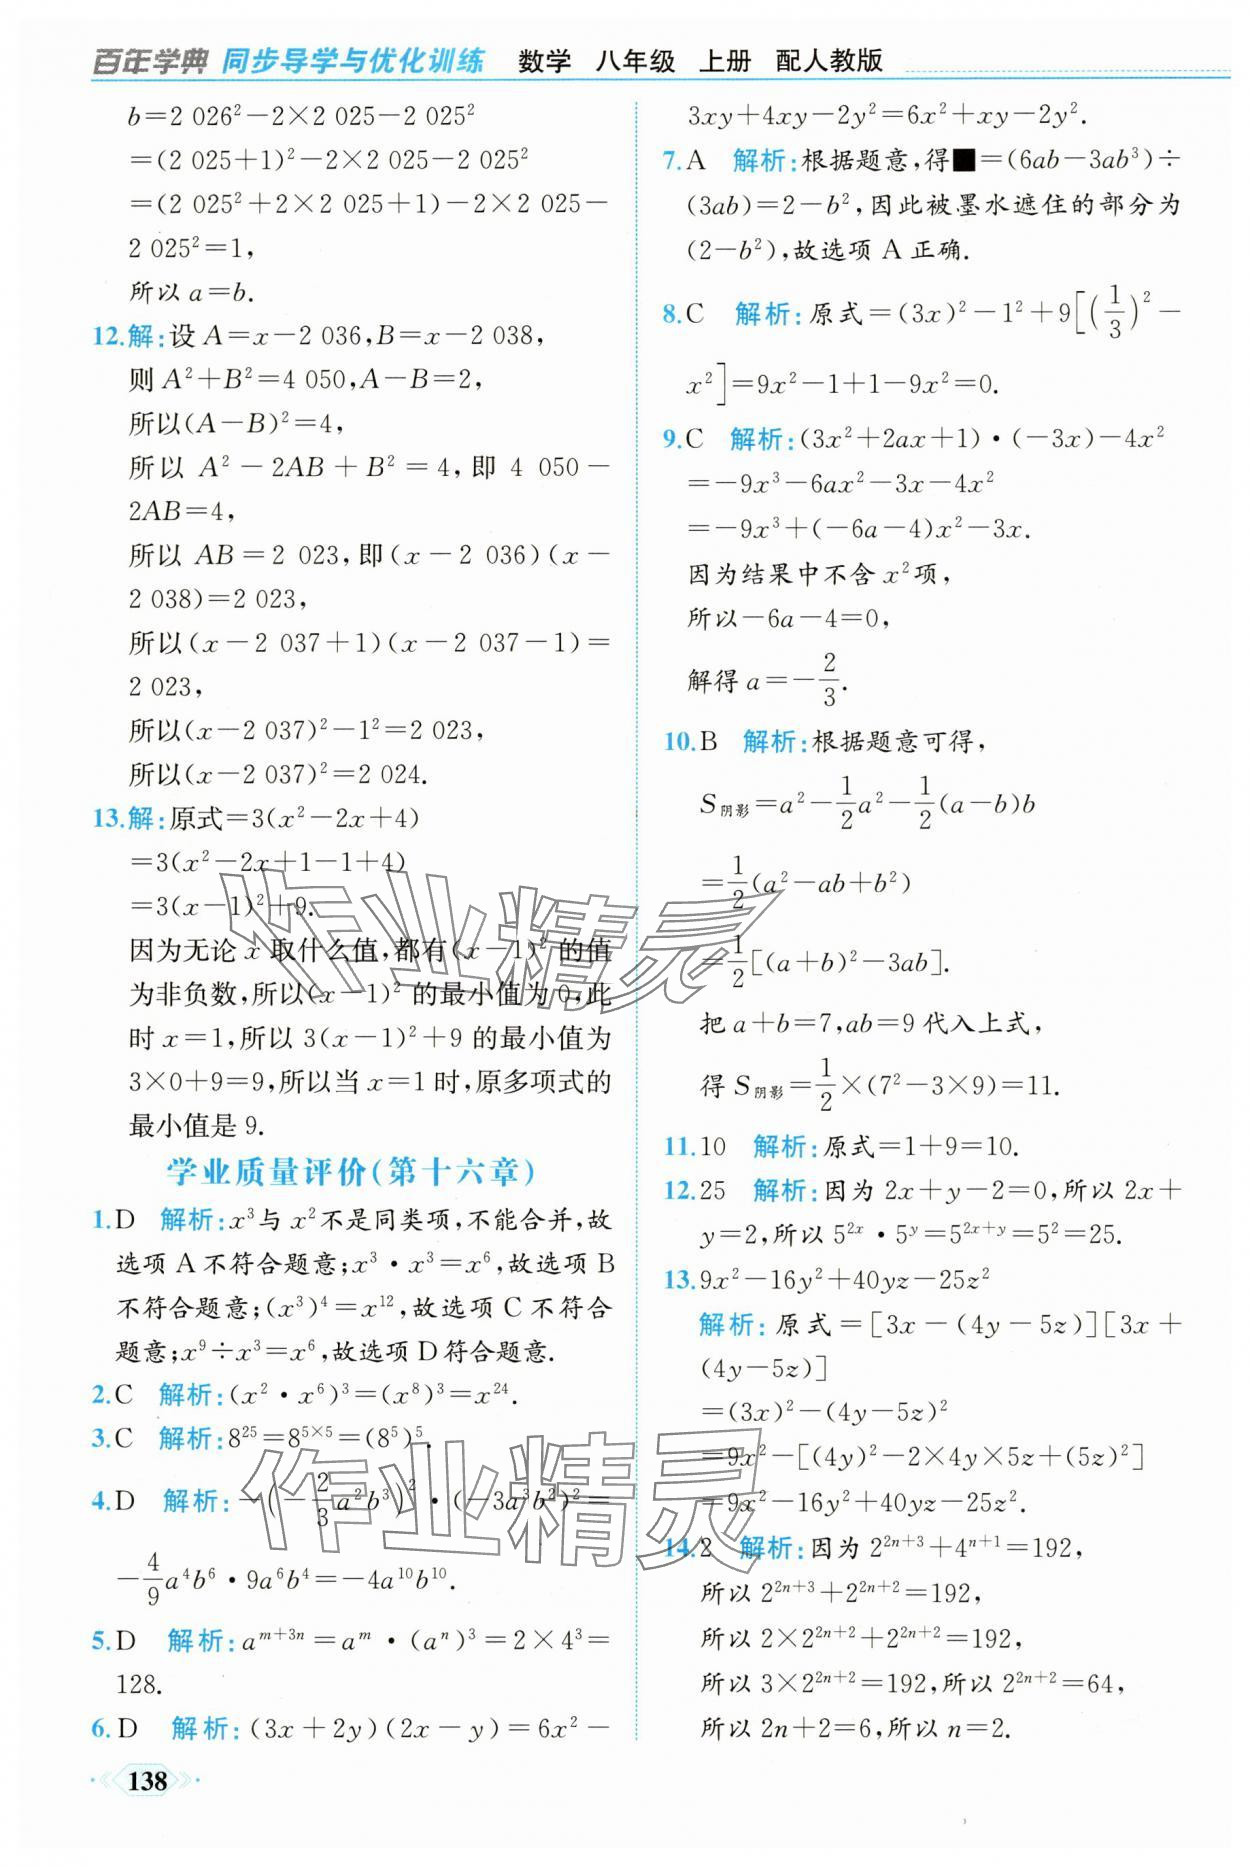 百年学典 同步导学与优化训练 数学 八年级 上册 配人教版
b=2 026²-2×2 025-2 025²
=(2 025+1)²-2×2 025-2 025²
=(2 025²+2×2 025+1)-2×2 025-
2 025²=1,
所以 a=b.
12.解:设 A=x-2 036,B=x-2 038,
则 A²+B²=4 050,A-B=2,
所以(A-B)²=4,
所以 A²-2AB+B²=4,即 4 050-
2AB=4,
所以 AB=2 023,即(x-2 036)(x-
2 038)=2 023,
所以(x-2 037+1)(x-2 037-1)=
2 023,
所以(x-2 037)²-1²=2 023,
所以(x-2 037)²=2 024.
13.解:原式=3(x²-2x+4)
=3(x²-2x+1-1+4)
=3(x-1)²+9.
因为无论 x 取什么值,都有(x-1)² 的值
为非负数,所以(x-1)² 的最小值为 0,此
时 x=1,所以 3(x-1)²+9 的最小值为
3×0+9=9,所以当 x=1 时,原多项式的
最小值是 9.
学业质量评价(第十六章)
1.D 解析:x³与 x²不是同类项,不能合并,故
选项 A 不符合题意;x³·x³=x⁶,故选项 B
不符合题意;(x³)⁴=x¹²,故选项 C 不符合
题意;x⁹÷x³=x⁶,故选项 D 符合题意.
2.C 解析:(x²·x⁶)³=(x⁸)³=x²⁴.
3.C 解析:8²⁵=8⁵ˣ⁵=(8⁵)⁵.
4.D 解析:-(-2/3a²b³)²·(-3a³b²)²=
-4/9a⁴b⁶·9a⁶b⁴=-4a¹⁰b¹⁰.
5.D 解析:a^{m+3n}=a^m·(a^n)³=2×4³=
128.
6.D 解析:(3x+2y)(2x-y)=6x²-
138
3xy+4xy-2y²=6x²+xy-2y².
7.A 解析:根据题意,得■=(6ab-3ab³)÷
(3ab)=2-b²,因此被墨水遮住的部分为
(2-b²),故选项 A 正确.
8.C 解析:原式=(3x)²-1²+9[(1/3)²-
x²]=9x²-1+1-9x²=0.
9.C 解析:(3x²+2ax+1)·(-3x)-4x²
=-9x³-6ax²-3x-4x²
=-9x³+(-6a-4)x²-3x.
因为结果中不含 x²项,
所以-6a-4=0,
解得 a=-2/3.
10.B 解析:根据题意可得,
S阴影=a²-1/2a²-1/2(a-b)b
=1/2(a²-ab+b²)
=1/2[(a+b)²-3ab].
把 a+b=7,ab=9 代入上式,
得 S阴影=1/2×(7²-3×9)=11.
11.10 解析:原式=1+9=10.
12.25 解析:因为 2x+y-2=0,所以 2x+
y=2,所以 5^{2x}·5^y=5^{2x+y}=5²=25.
13.9x²-16y²+40yz-25z²
解析:原式=[3x-(4y-5z)][3x+
(4y-5z)]
=(3x)²-(4y-5z)²
=9x²-[(4y)²-2×4y×5z+(5z)²]
=9x²-16y²+40yz-25z².
14.2 解析:因为 2^{2n+3}+4^{n+1}=192,
所以 2^{2n+3}+2^{2n+2}=192,
所以 2×2^{2n+2}+2^{2n+2}=192,
所以 3×2^{2n+2}=192,所以 2^{2n+2}=64,
所以 2n+2=6,所以 n=2.
作业精灵
作业精灵